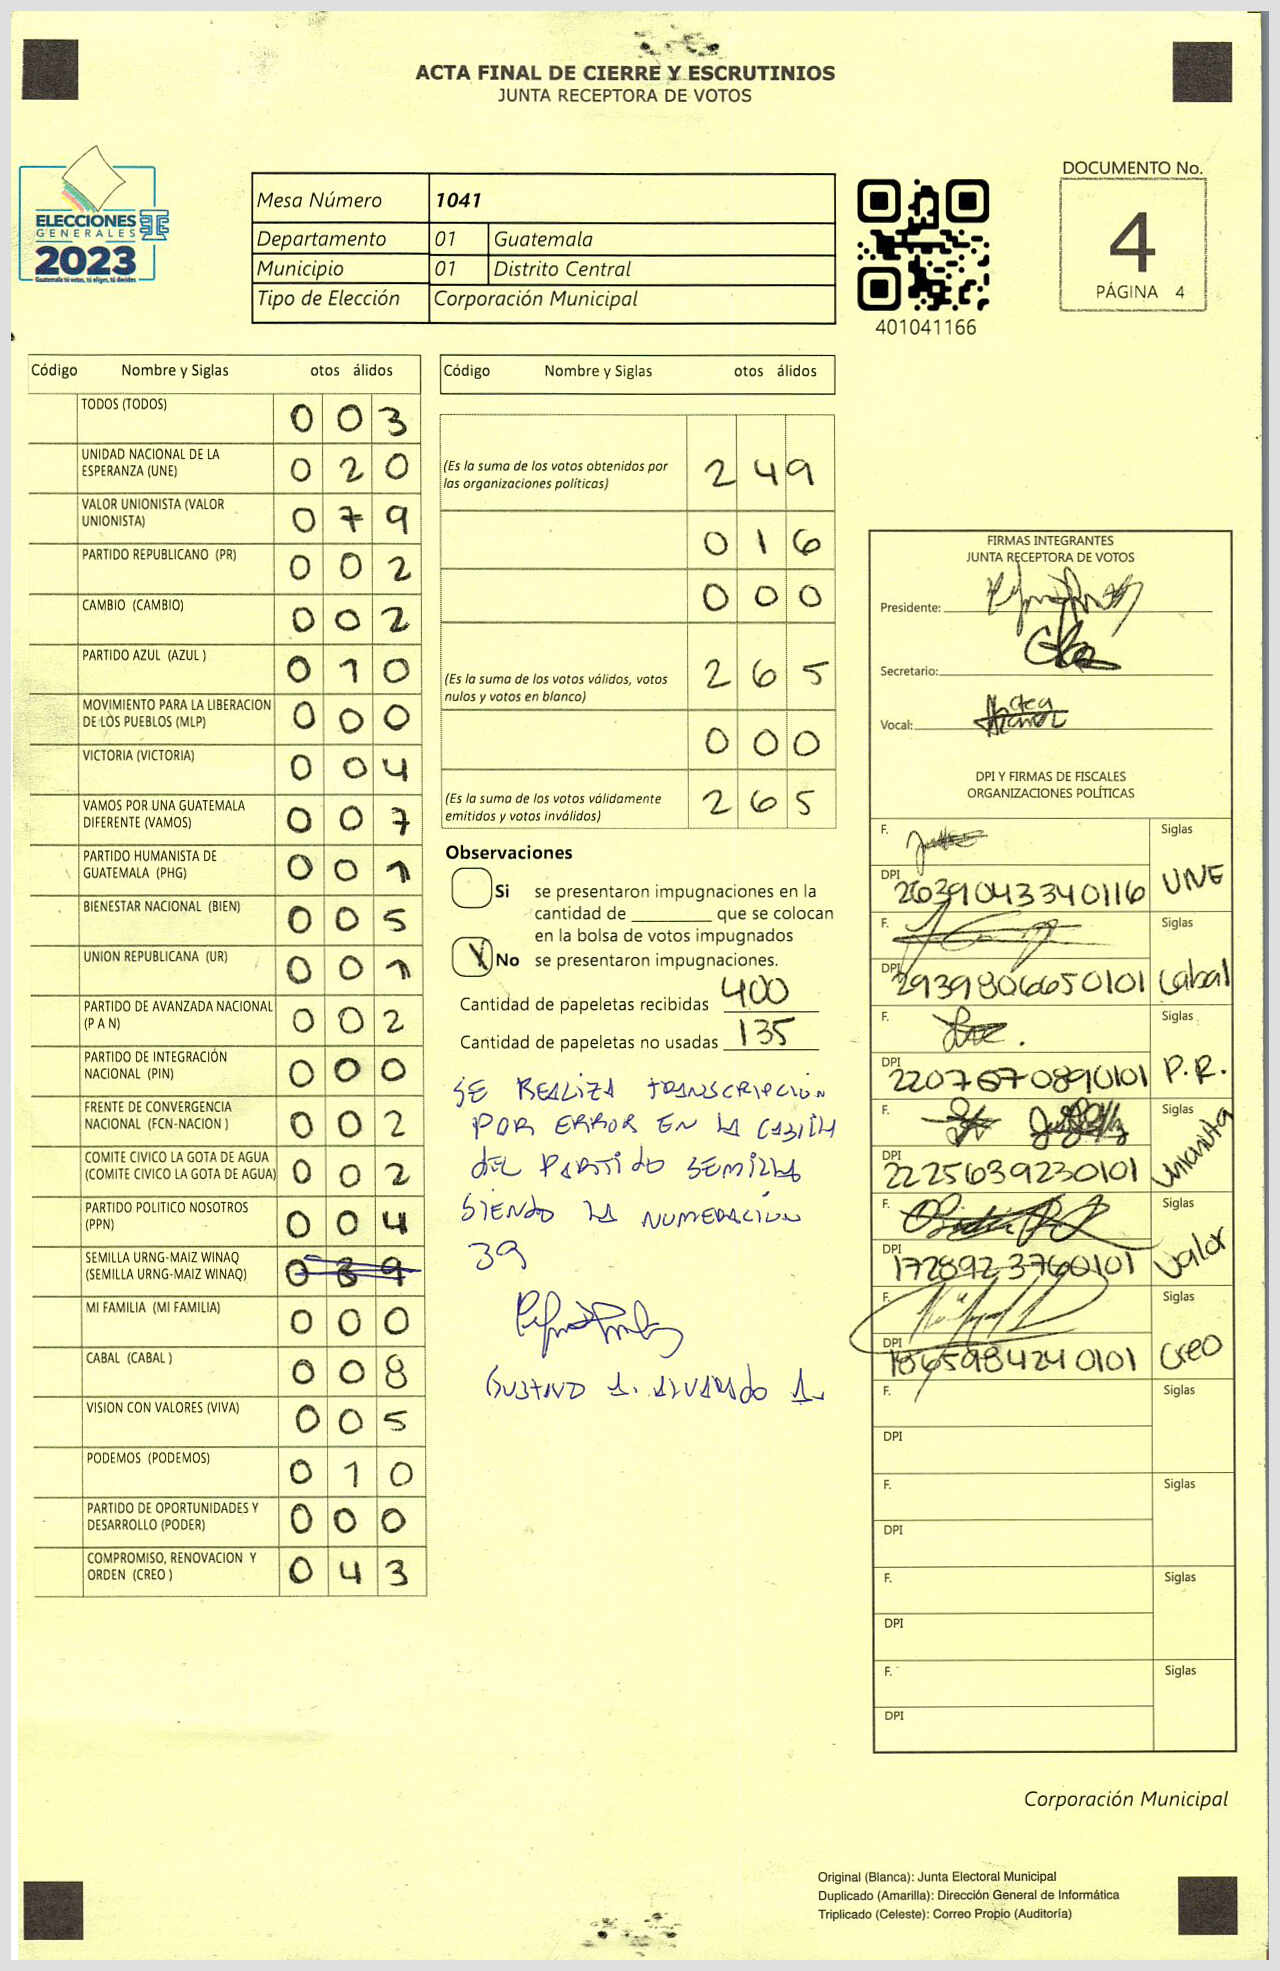 ACTA FINAL DE CIERRE Y ESCRUTINIOS
JUNTA RECEPTORA DE VOTOS
ELECCIONES
GENERALES
2023
Guatemala tú votas, tú eliges, tú decides
Mesa Número 1041
Departamento 01 Guatemala
Municipio 01 Distrito Central
Tipo de Elección Corporación Municipal
401041166
DOCUMENTO No.
4
PÁGINA 4
Código Nombre y Siglas otos álidos
TODOS (TODOS) 0 0 3
UNIDAD NACIONAL DE LA
ESPERANZA (UNE) 0 2 0
VALOR UNIONISTA (VALOR
UNIONISTA) 0 7 9
PARTIDO REPUBLICANO (PR) 0 0 2
CAMBIO (CAMBIO) 0 0 2
PARTIDO AZUL (AZUL ) 0 1 0
MOVIMIENTO PARA LA LIBERACION
DE LOS PUEBLOS (MLP) 0 0 0
VICTORIA (VICTORIA) 0 0 4
VAMOS POR UNA GUATEMALA
DIFERENTE (VAMOS) 0 0 7
PARTIDO HUMANISTA DE
GUATEMALA (PHG) 0 0 1
BIENESTAR NACIONAL (BIEN) 0 0 5
UNION REPUBLICANA (UR) 0 0 1
PARTIDO DE AVANZADA NACIONAL
(P A N) 0 0 2
PARTIDO DE INTEGRACIÓN
NACIONAL (PIN) 0 0 0
FRENTE DE CONVERGENCIA
NACIONAL (FCN-NACION ) 0 0 2
COMITE CIVICO LA GOTA DE AGUA
(COMITE CIVICO LA GOTA DE AGUA) 0 0 2
PARTIDO POLITICO NOSOTROS
(PPN) 0 0 4
SEMILLA URNG-MAIZ WINAQ
(SEMILLA URNG-MAIZ WINAQ) 0 39
MI FAMILIA (MI FAMILIA) 0 0 0
CABAL (CABAL ) 0 0 8
VISION CON VALORES (VIVA) 0 0 5
PODEMOS (PODEMOS) 0 1 0
PARTIDO DE OPORTUNIDADES Y
DESARROLLO (PODER) 0 0 0
COMPROMISO, RENOVACION Y
ORDEN (CREO ) 0 4 3
Código Nombre y Siglas otos álidos
(Es la suma de los votos obtenidos por
las organizaciones políticas) 2 4 9
0 1 6
0 0 0
(Es la suma de los votos válidos, votos
nulos y votos en blanco) 2 6 5
0 0 0
(Es la suma de los votos válidamente
emitidos y votos inválidos) 2 6 5
Observaciones
Si se presentaron impugnaciones en la
cantidad de ________ que se colocan
en la bolsa de votos impugnados
X No se presentaron impugnaciones.
Cantidad de papeletas recibidas 400
Cantidad de papeletas no usadas 135
SE REALIZA TRANSCRIPCIÓN
POR ERROR EN LA CASILLA
DEL PARTIDO SEMILLA
SIENDO LA NUMERACIÓN
39
GUSTAVO A. ALVARADO A.
FIRMAS INTEGRANTES
JUNTA RECEPTORA DE VOTOS
Presidente:
Secretario:
Vocal:
DPI Y FIRMAS DE FISCALES
ORGANIZACIONES POLÍTICAS
F. Siglas
DPI 2639043340116 UNE
F. Siglas
DPI 2939806650101 Cabal
F. Siglas
DPI 2207670890101 P.R.
F. Siglas
DPI 2225639230101 Unionista
F. Siglas
DPI 1728923760101 Valor
F. Siglas
DPI 1865984240101 Creo
F. Siglas
DPI
F. Siglas
DPI
F. Siglas
DPI
F. Siglas
DPI
Corporación Municipal
Original (Blanca): Junta Electoral Municipal
Duplicado (Amarilla): Dirección General de Informática
Triplicado (Celeste): Correo Propio (Auditoría)